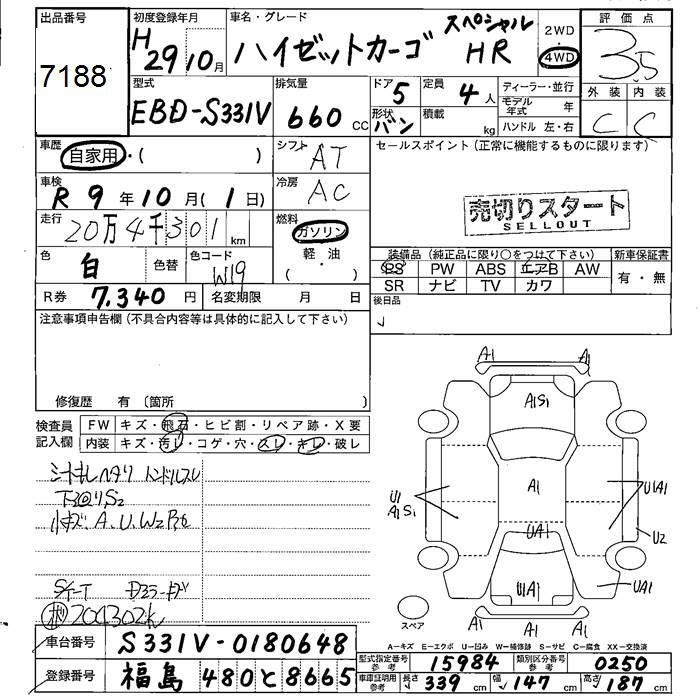 出品番号
7188
初度登録年月
H 29 10月
車名・グレード
ハイゼットカーゴ スペシャル HR
2WD
4WD
評価点
3.5
型式
EBD-S331V
排気量
660 cc
ドア 5
形状 バン
定員 4 人
積載 kg
ディーラー・並行
モデル年式 年
ハンドル 左・右
外装 内装
C C
車歴
自家用・( )
シフト AT
セールスポイント(正常に機能するものに限ります)
売切りスタート
SELLOUT
車検
R 9 年 10 月(1 日)
冷房 AC
走行
20万4千301 km
燃料
ガソリン
軽・油
( )
色
白 色替
色コード
W19
R券 7,340 円
名変期限 月 日
装備品(純正品に限り○をつけて下さい)
PS PW ABS エアB AW
SR ナビ TV カワ
新車保証書
有・無
後日品
注意事項申告欄(不具合内容等は具体的に記入して下さい)
修復歴 有 〔箇所 〕
検査員記入欄
FW キズ・飛石・ヒビ割・リペア跡・X要
内装 キズ・汚レ・コゲ・穴・スレ・キレ・破レ
シートキレヘタリ ハンドルスレ
下廻リS2
小キズ A.U.W2
204302k
A1 A1
A1S1
A1
UA1
U1A1
U1
A1S1
U1A1
U2
UA1
A1 A1 A1
スペア
A-キズ E-エクボ U-凹み W-補修跡 S-サビ C-腐食 XX-交換済
車台番号
S331V-0180648
登録番号
福島 480 と 8665
型式指定番号 参考 15984
類別区分番号 参考 0250
車庫証明用 参考
長さ 339 cm 幅 147 cm 高さ 187 cm